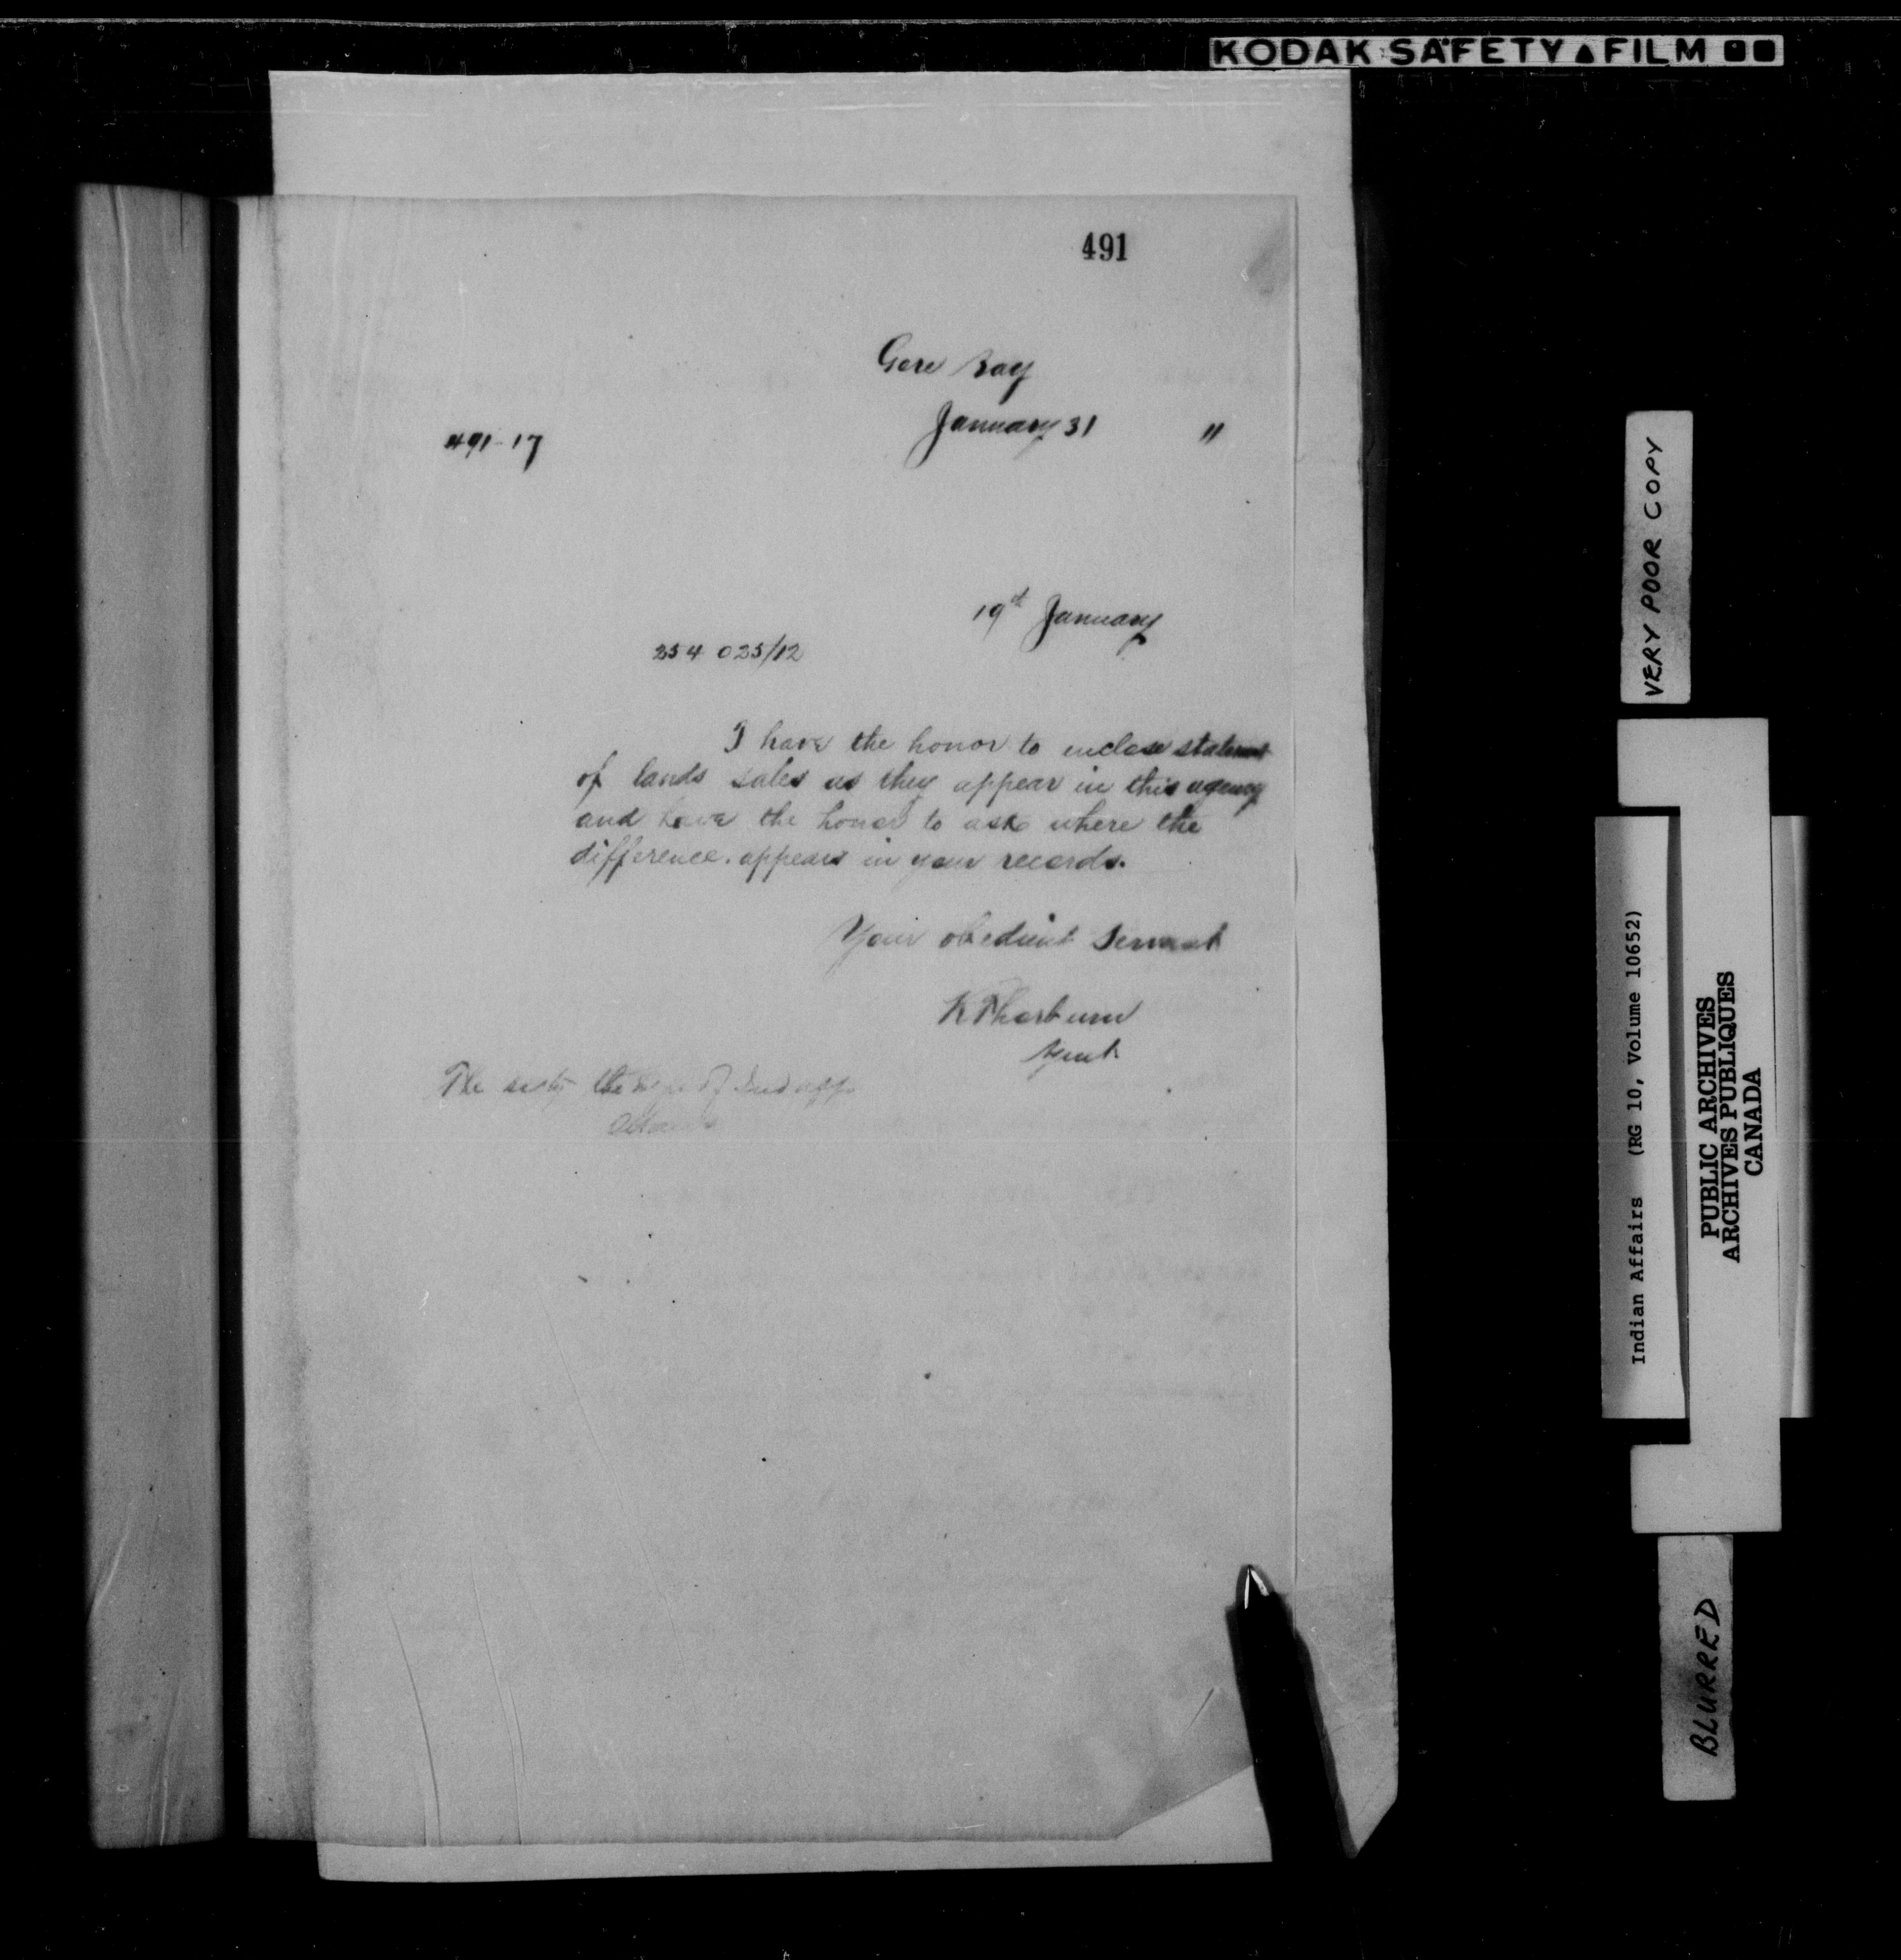 KODAK SAFETY FILM
491
Gore Bay
491-17 January 31 "
19th January
254 025/12
I have the honor to enclose statement
of lands sales as they appear in this agency
and have the honor to ask where the
difference. appears in your records.
Your obedient Servant
R Thorburn
Agent
The secty the Dept of Ind aff
Ottawa
VERY POOR COPY
Indian Affairs (RG 10, Volume 10652)
PUBLIC ARCHIVES
ARCHIVES PUBLIQUES
CANADA
BLURRED